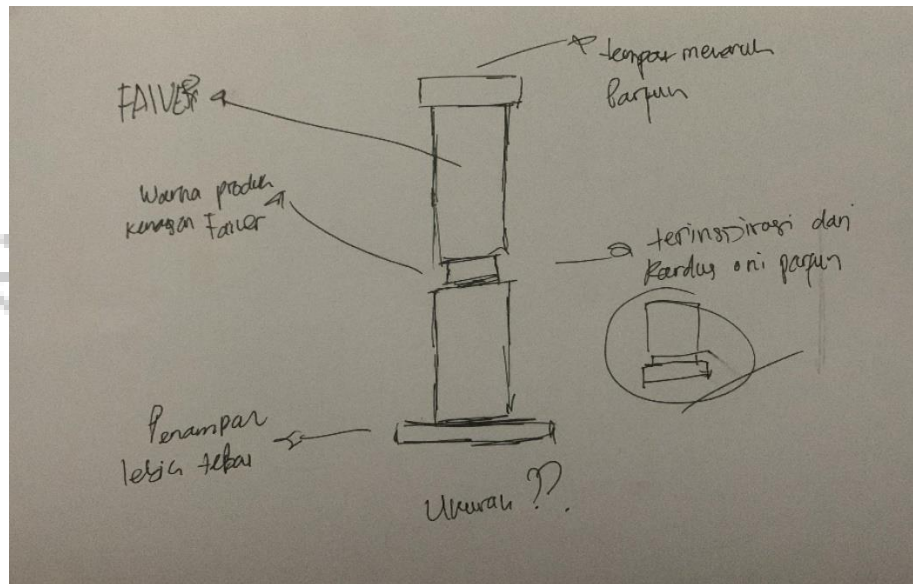 tempat menaruh
Parfum
FAIVER
Warna produk
kemasan Faiver
terinspirasi dari
Kardus oni parfum
Penampan
lebih tebal
Ukuran ??